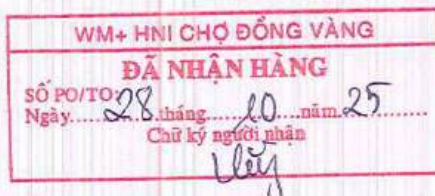 WM+ HNI CHỢ ĐỒNG VÀNG
ĐÃ NHẬN HÀNG
SỐ PO/TO:
Ngày......28.tháng......10....năm.25
Chữ ký người nhận